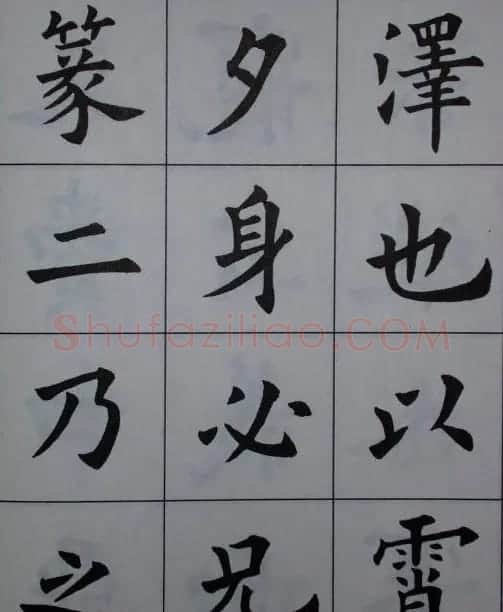 澤也以霄
夕身必兄
篆二乃之
Shufaziliao.COM